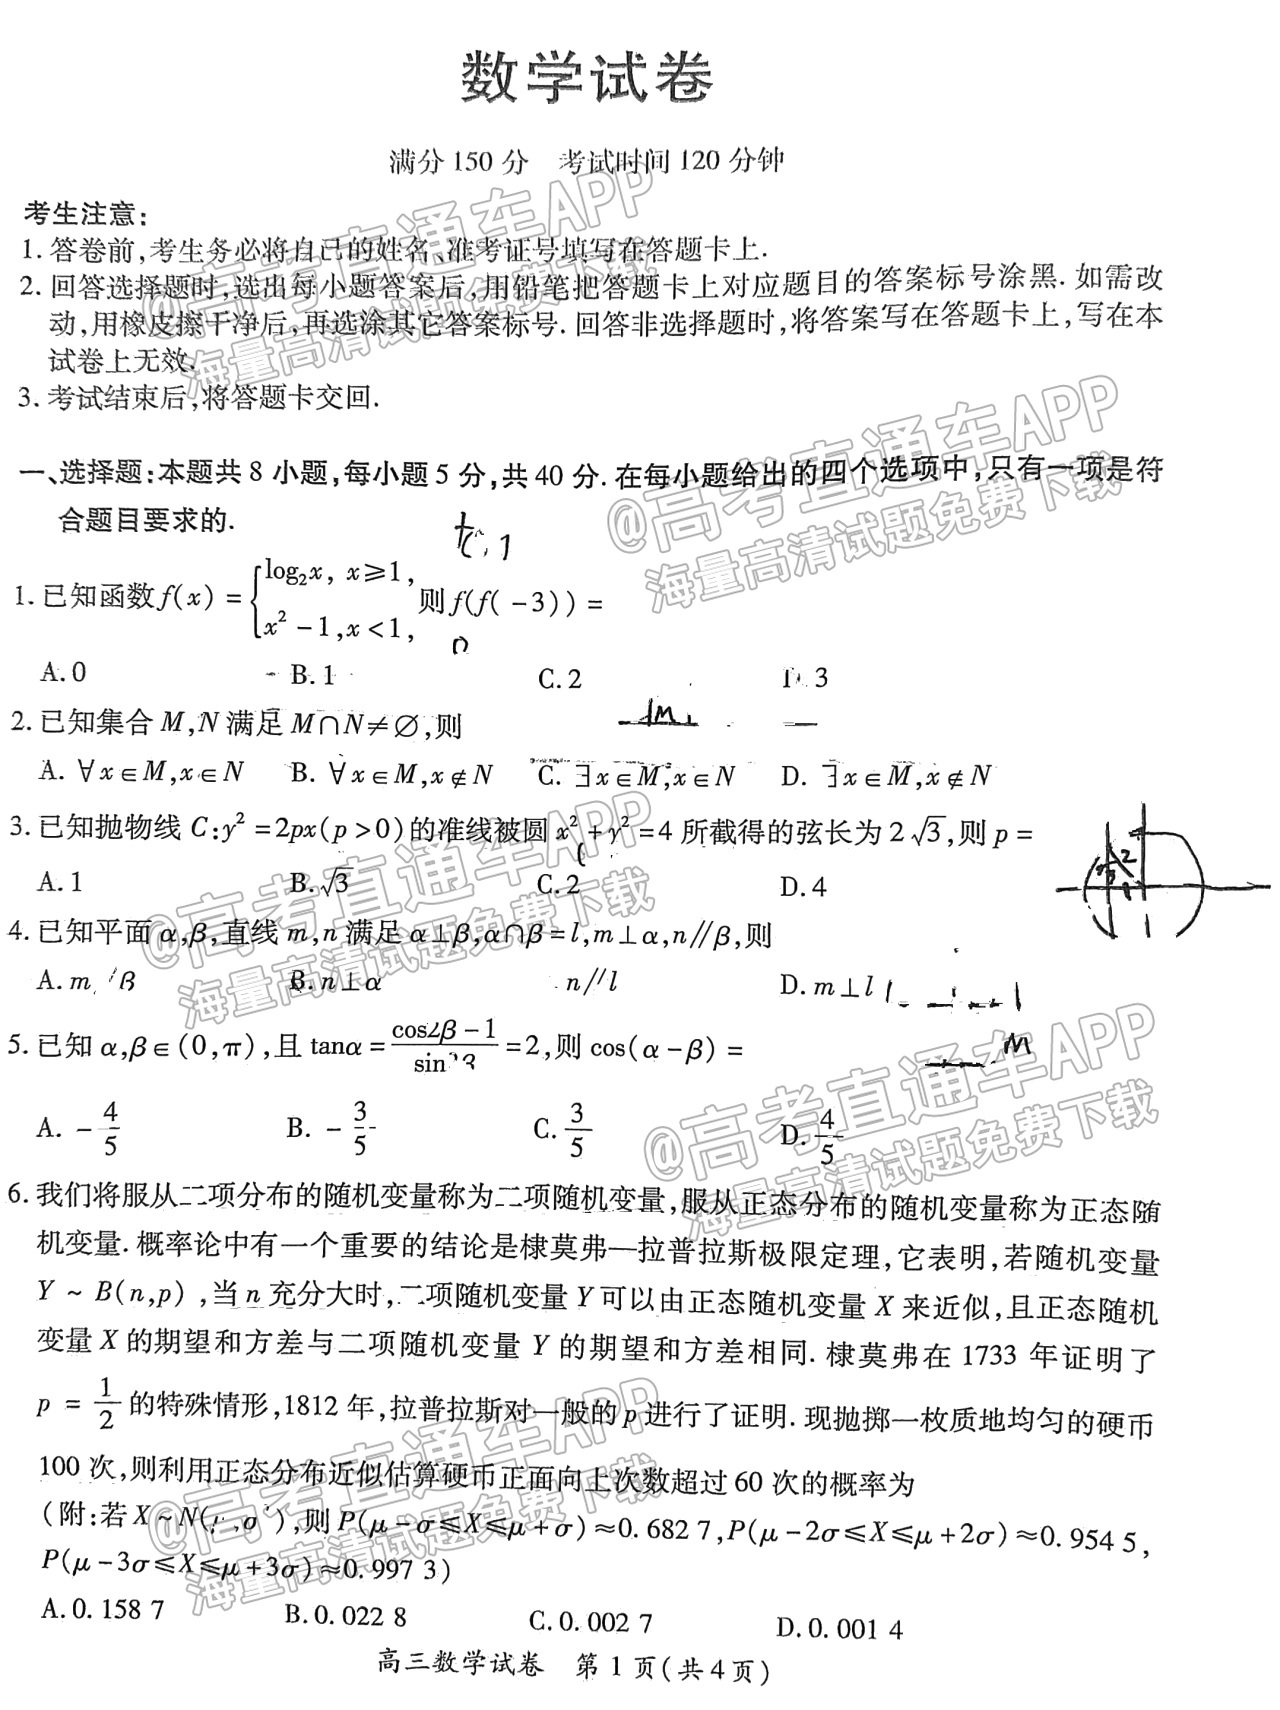 数学试卷
满分 150 分　考试时间 120 分钟
考生注意:
1. 答卷前,考生务必将自己的姓名、准考证号填写在答题卡上.
2. 回答选择题时,选出每小题答案后,用铅笔把答题卡上对应题目的答案标号涂黑. 如需改
动,用橡皮擦干净后,再选涂其它答案标号. 回答非选择题时,将答案写在答题卡上,写在本
试卷上无效.
3. 考试结束后,将答题卡交回.
@高考直通车APP
海量高清试题免费下载
一、选择题:本题共 8 小题,每小题 5 分,共 40 分. 在每小题给出的四个选项中,只有一项是符
合题目要求的.
@高考直通车APP
海量高清试题免费下载
1. 已知函数 f(x) = { log₂x, x⩾1, x² −1, x <1, 则 f(f( −3)) =
0
A. 0　B. 1　C. 2　3
M
2. 已知集合 M,N 满足 M∩N≠∅,则
A. ∀x∈M,x∈N　B. ∀x∈M,x∉N　C. ∃x∈M,x∈N　D. ∃x∈M,x∉N
3. 已知抛物线 C:y² =2px(p >0)的准线被圆 x² +y² =4 所截得的弦长为 2√3,则 p =
A. 1　B. √3　C. 2　D. 4
2
@高考直通车APP
海量高清试题免费下载
4. 已知平面 α,β,直线 m,n 满足 α⊥β,α∩β=l,m⊥α,n∥β,则
A. m β　B. n⊥α　n∥l　D. m⊥l
5. 已知 α,β∈(0,π),且 tanα = (cos2β −1)/(sin ) =2,则 cos(α −β) =
M
A. −4/5　B. −3/5　C. 3/5　D. 4/5
@高考直通车APP
海量高清试题免费下载
6. 我们将服从二项分布的随机变量称为二项随机变量,服从正态分布的随机变量称为正态随
机变量. 概率论中有一个重要的结论是棣莫弗—拉普拉斯极限定理,它表明,若随机变量
Y ~ B(n,p) ,当 n 充分大时,二项随机变量 Y 可以由正态随机变量 X 来近似,且正态随机
变量 X 的期望和方差与二项随机变量 Y 的期望和方差相同. 棣莫弗在 1733 年证明了
p = 1/2 的特殊情形,1812 年,拉普拉斯对一般的 p 进行了证明. 现抛掷一枚质地均匀的硬币
100 次,则利用正态分布近似估算硬币正面向上次数超过 60 次的概率为
(附:若 X ~N( ,σ ),则 P(μ −σ⩽X⩽μ +σ) ≈0. 682 7,P(μ −2σ⩽X⩽μ +2σ) ≈0. 954 5,
P(μ −3σ⩽X⩽μ +3σ) ≈0. 997 3)
@高考直通车APP
海量高清试题免费下载
A. 0. 158 7　B. 0. 022 8　C. 0. 002 7　D. 0. 001 4
高三数学试卷　第 1 页(共 4 页)